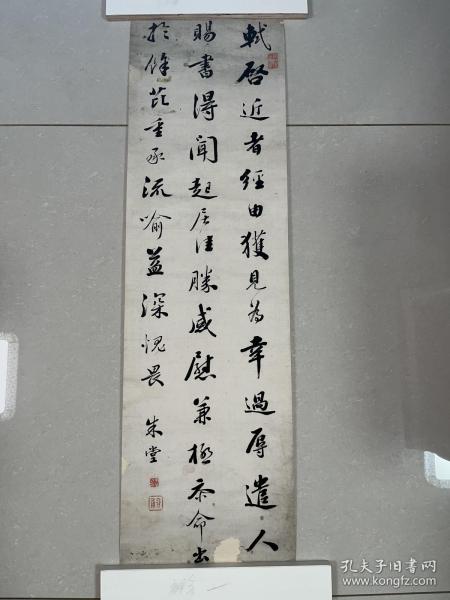 軾啓近者經由獲見為幸過辱遣人
賜書得聞起居佳勝感慰兼極忝命出
於餘芘重承流喻益深愧畏
朱堂
孔夫子旧书网
www.kongfz.com